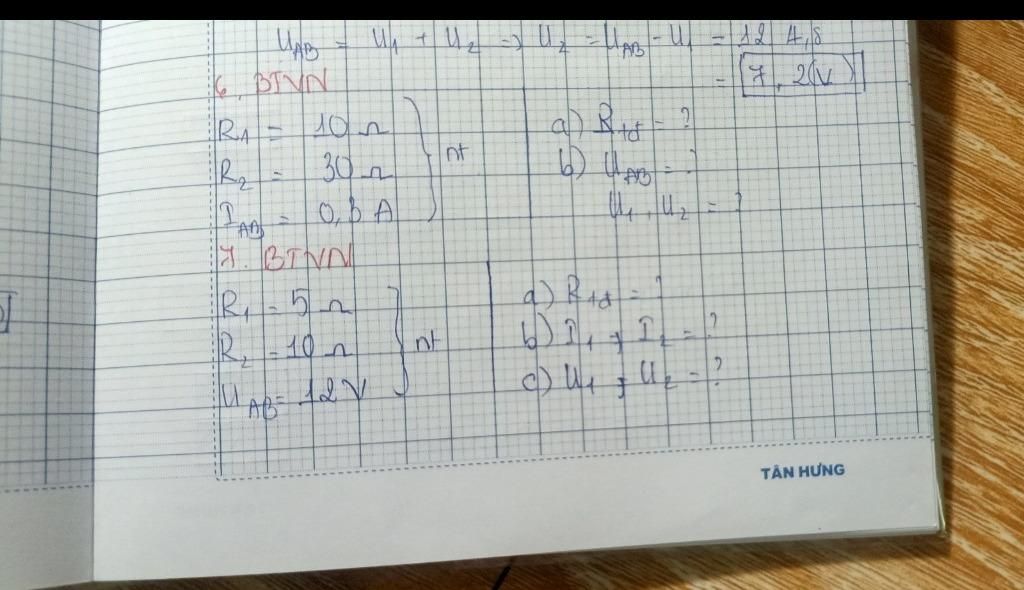 U_AB = U₁ + U₂ => U₂ = U_AB - U₁ = 12 4,8
= 7,2(V)
6. BTVN
R₁ = 10 Ω
R₂ = 30 Ω
I_AB = 0,3 A
nt
a) R_tđ = ?
b) U_AB = ?
U₁, U₂ = ?
7. BTVN
R₁ = 5 Ω
R₂ = 10 Ω
U_AB = 12 V
nt
a) R_tđ = ?
b) I₁, I₂ = ?
c) U₁, U₂ = ?
TÂN HƯNG